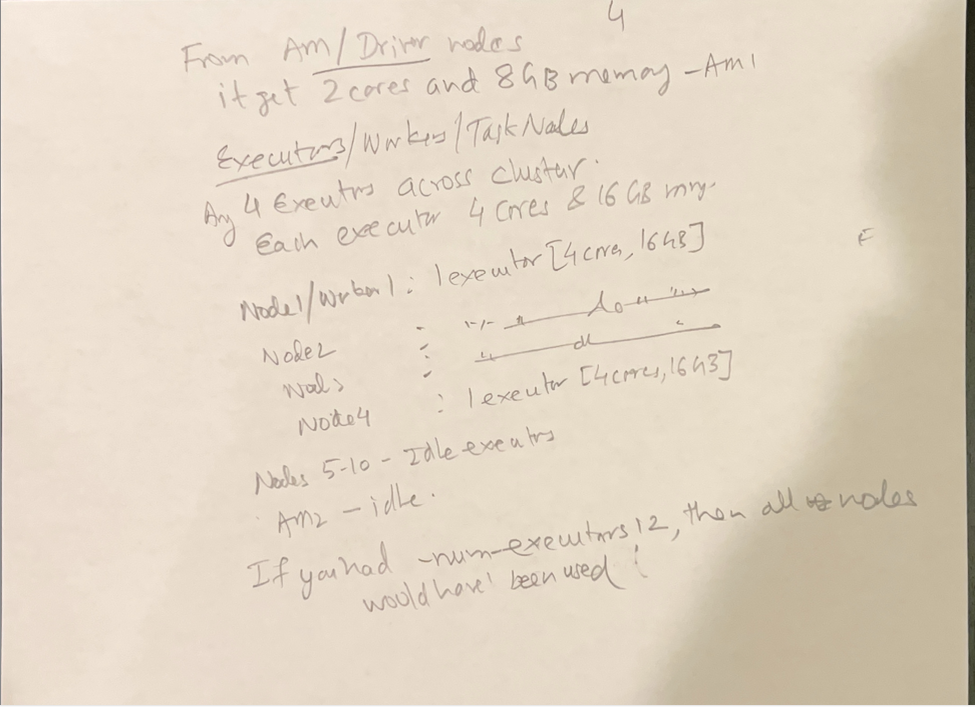 4
From AM/Driver nodes
it get 2 cores and 8GB memory - Am1
Executors/Workers/Task Nodes
Any 4 Executrs across clustar.
Each executor 4 Cores & 16 GB mry.
F
Node1/Worker1 : 1 executor [4 cores, 16GB]
Node2 : -"- " do " "
Node3 : " do "
Node4 : 1 executor [4 cores, 16GB]
Nodes 5-10 - Idle executrs
AM2 - idle.
If you had -num-executors 12, then all nodes
would have been used !